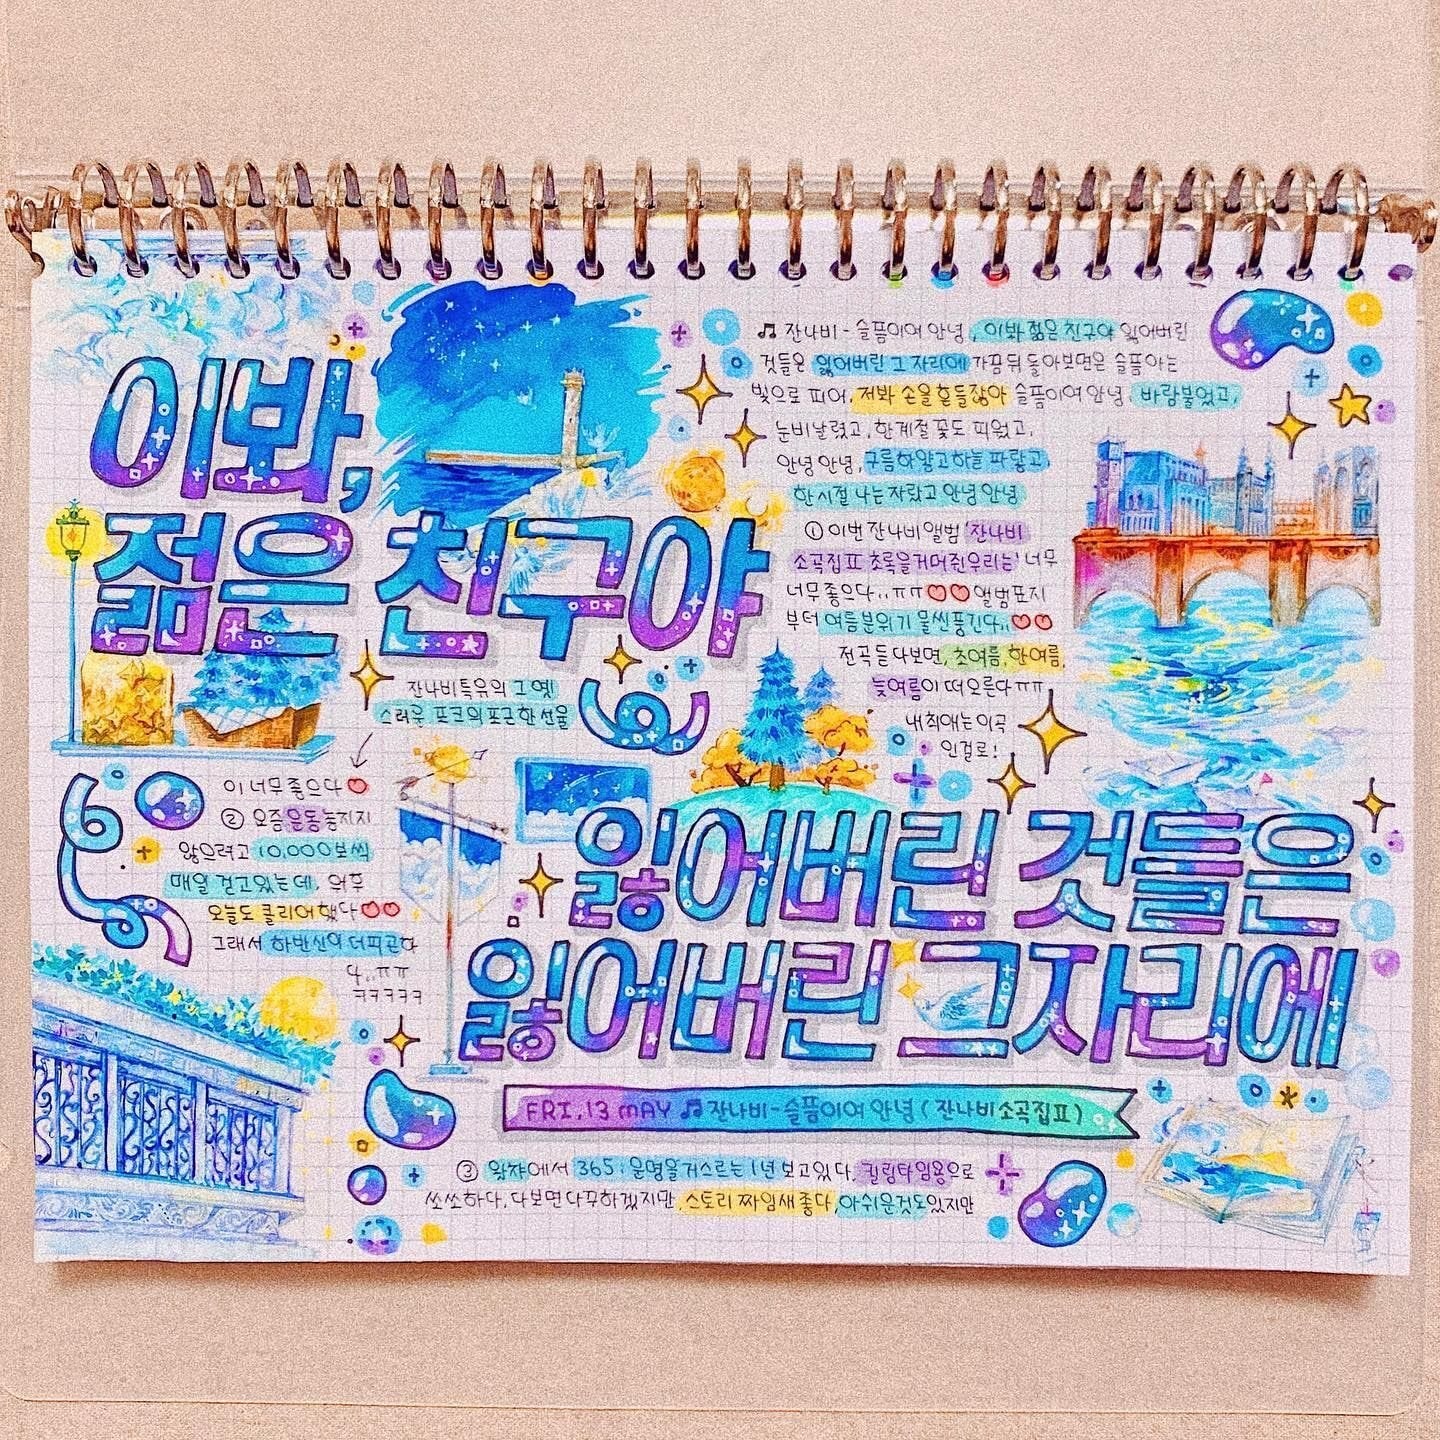 이봐,
젊은 친구야
♫ 잔나비 - 슬픔이여 안녕, 이봐 젊은 친구야 잃어버린
것들은 잃어버린 그 자리에 가끔 뒤 돌아보면은 슬픔 아는
빛으로 피어, 저봐 손을 흔들잖아 슬픔이여 안녕, 바람 불었고,
눈비 날렸고, 한 계절 꽃도 피웠고,
안녕 안녕, 구름 하얗고 하늘 파랗고,
한 시절 나는 자랐고 안녕 안녕
① 이번 잔나비 앨범 '잔나비
소곡집 Ⅱ 초록을거머쥔우리는' 너무
너무 좋으다..ㅠㅠ♡♡ 앨범표지
부터 여름분위기 물씬풍긴다..♡♡
전곡 듣다보면, 초여름, 한여름,
늦여름이 떠오른다ㅠㅠ
내 최애는 이곡
인걸로!
잔나비특유의 그 옛
스러운 포크의 포근한 선율
이 너무 좋으다♡
② 요즘 운동 놓지지
않으려고 10,000보씩
매일 걷고있는데,
오늘도 클리어 했다♡♡
그래서 하반신이 더 피곤하
다..ㅠㅠ
ㅋㅋㅋㅋㅋ
잃어버린 것들은
잃어버린 그 자리에
FRI, 13 MAY ♫ 잔나비-슬픔이여 안녕 (잔나비 소곡집 Ⅱ)
③ 왓챠에서 365 : 운명을거스르는 1년 보고있다, 킬링타임용으로
쏘쏘하다, 다보면 다꾸하겠지만, 스토리 짜임새 좋다, 아쉬운것도 있지만